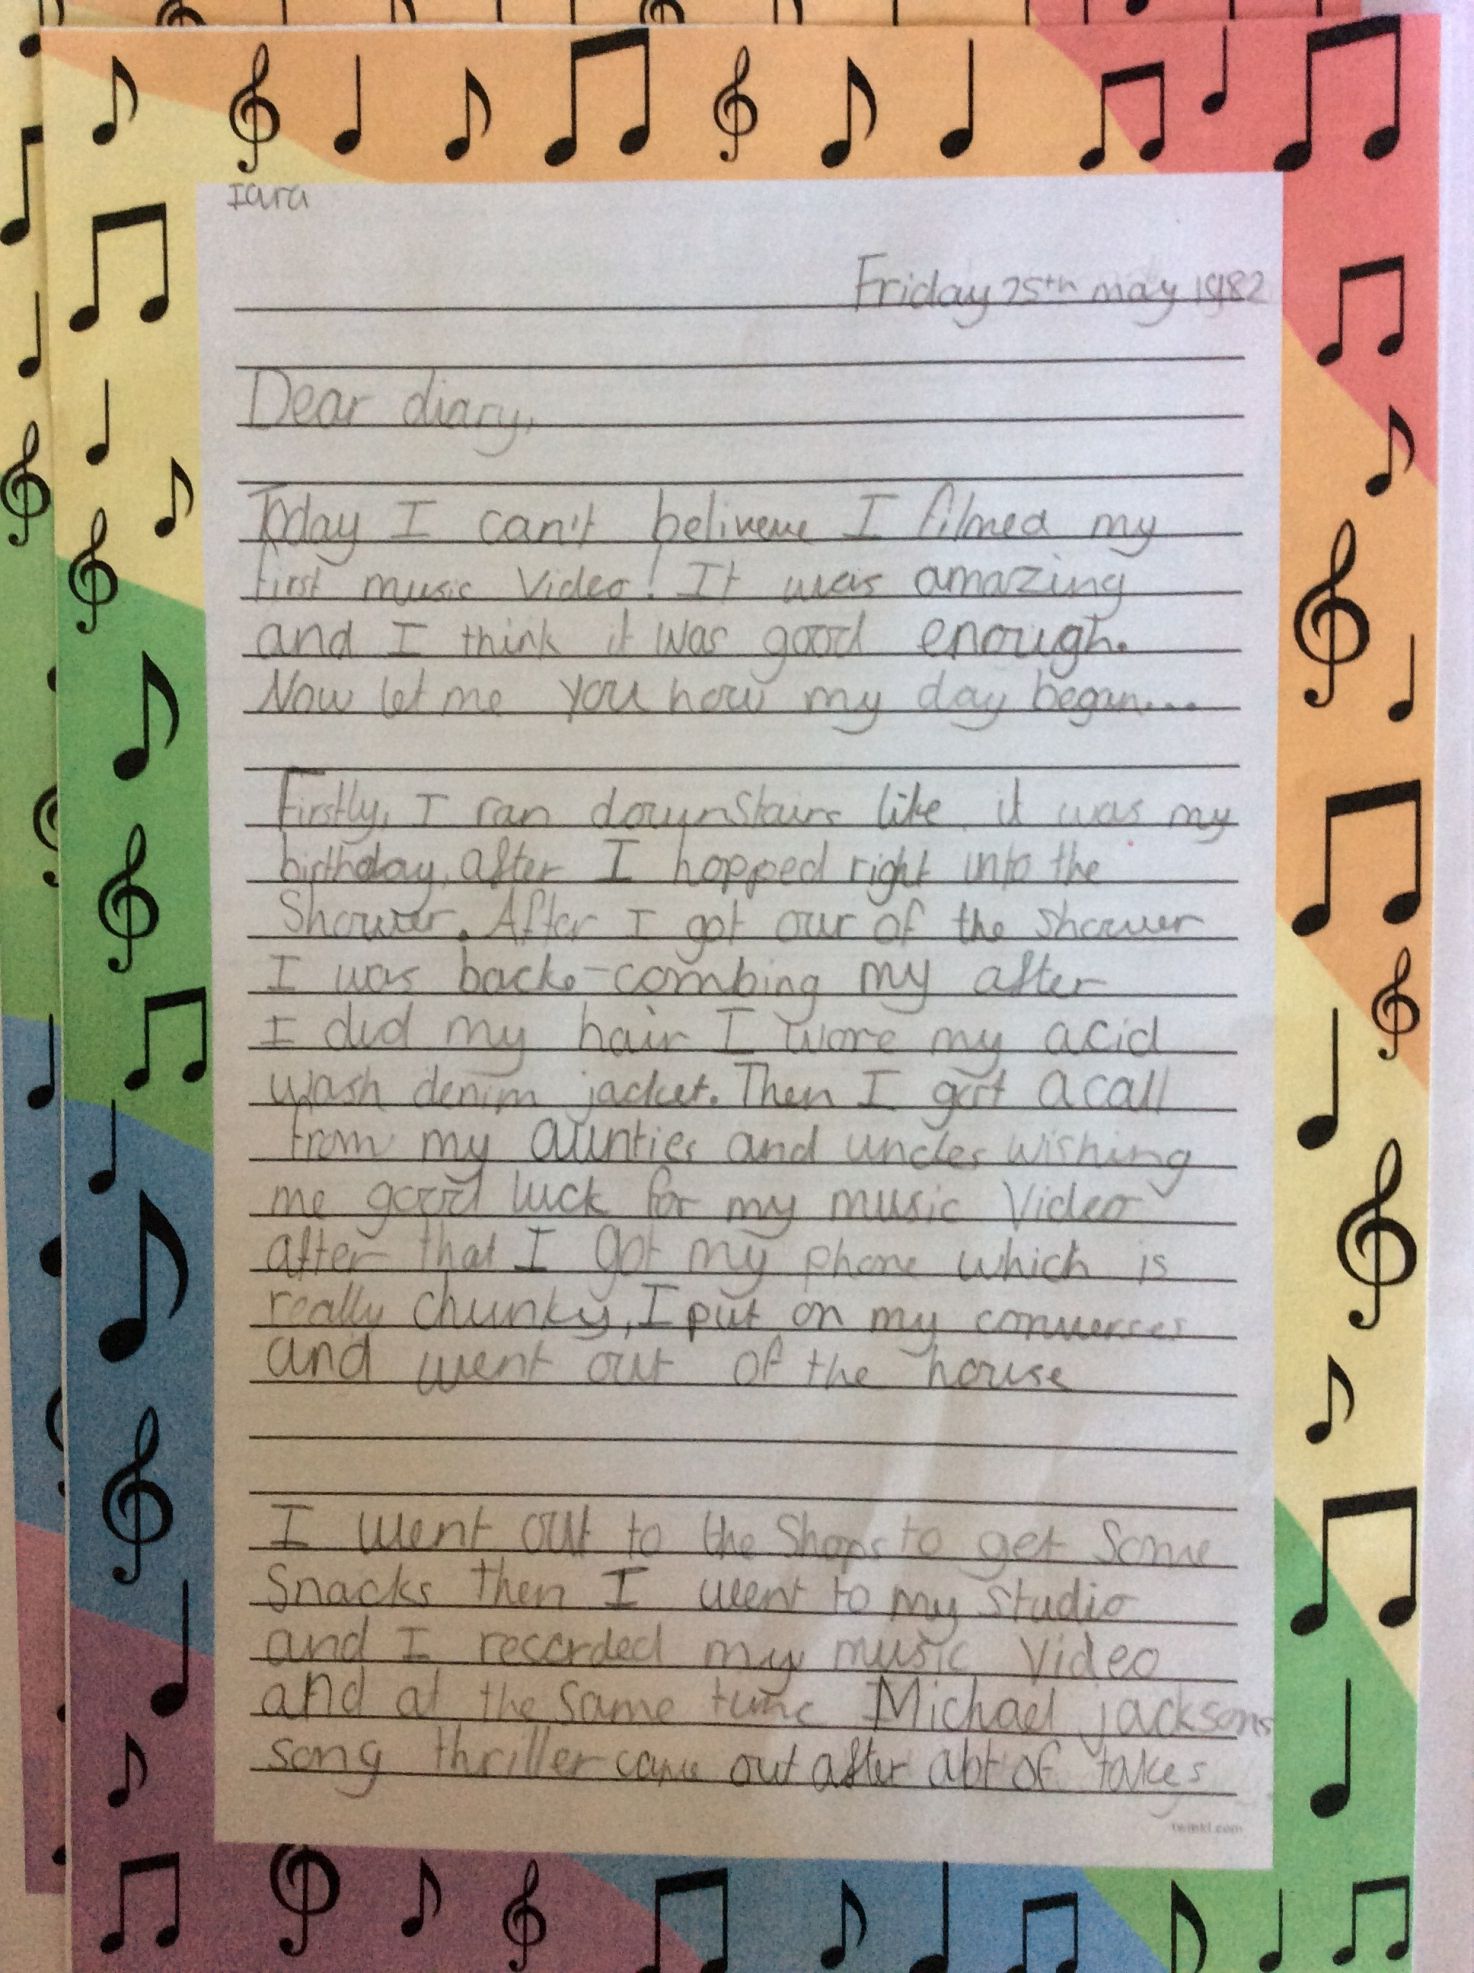 Iara
Friday 25th may 1982
Dear diary,
Today I can't beliveve I filmed my
first music video! It was amazing
and I think it was good enough.
Now let me you how my day began...
Firstly, I ran downstairs like it was my
birthday, after I hopped right into the
Shower. After I got our of the shower
I was back-combing my after
I did my hair I wore my acid
wash denim jacket. Then I got a call
from my aunties and uncles wishing
me good luck for my music video
after that I got my phone which is
really chunky, I put on my converses
and went out of the house
I went out to the Shops to get Some
Snacks then I went to my studio
and I recorded my music video
and at the same time Michael jacksons
song thriller came out after a lot of takes
twinkl.com